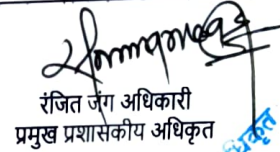 रंजित जंग अधिकारी
प्रमुख प्रशासकीय अधिकृत